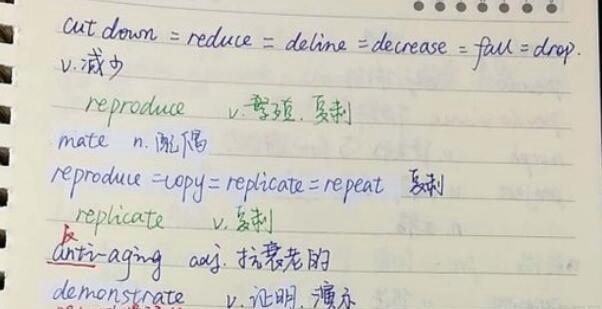 cut down = reduce = deline = decrease = fall = drop.
v. 减少
reproduce v. 繁殖. 复制
mate n. 配偶
reproduce = copy = replicate = repeat 复制
replicate v. 复制
反
anti-aging adj. 抗衰老的
demonstrate v. 证明. 演示